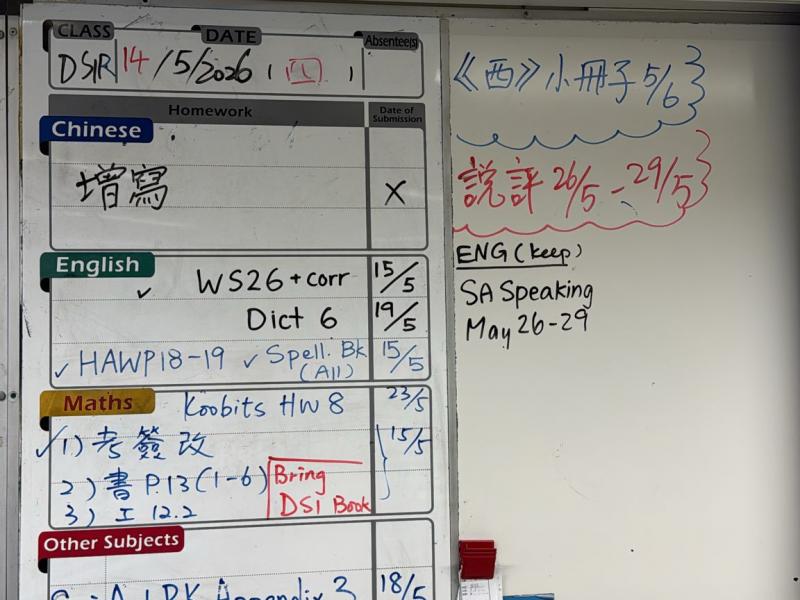 CLASS DATE Absentee(s)
DSIR 14/5/2026 (四)
Homework Date of Submission
Chinese
增寫 X
English
✓ WS26 + corr 15/5
Dict 6 19/5
✓ HAWP18-19 ✓ Spell. Bk (All) 15/5
Maths Koobits HW 8 23/5
✓ 1) 考簽改 15/5
2) 書 P.13 (1-6)
3) 工 12.2
Bring
DSI Book
Other Subjects
Appendix 3 18/5
《西》小冊子 5/6
說評 26/5 - 29/5
ENG (keep)
SA Speaking
May 26-29